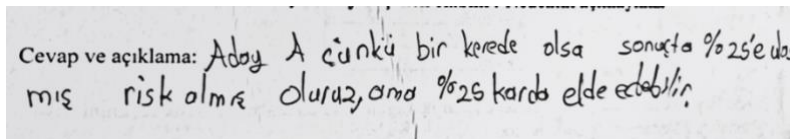 Cevap ve açıklama: Aday A çünkü bir kerede olsa sonuçta %25'e ulaş
mış risk almış oluruz, ama %25 karda elde edebilir.